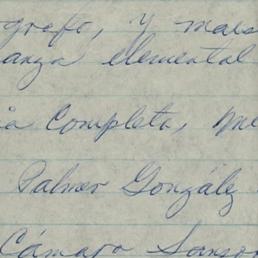 grafo, y maes
anza elemental
ía Completa, Me
Palmer González
Cámara Sanso